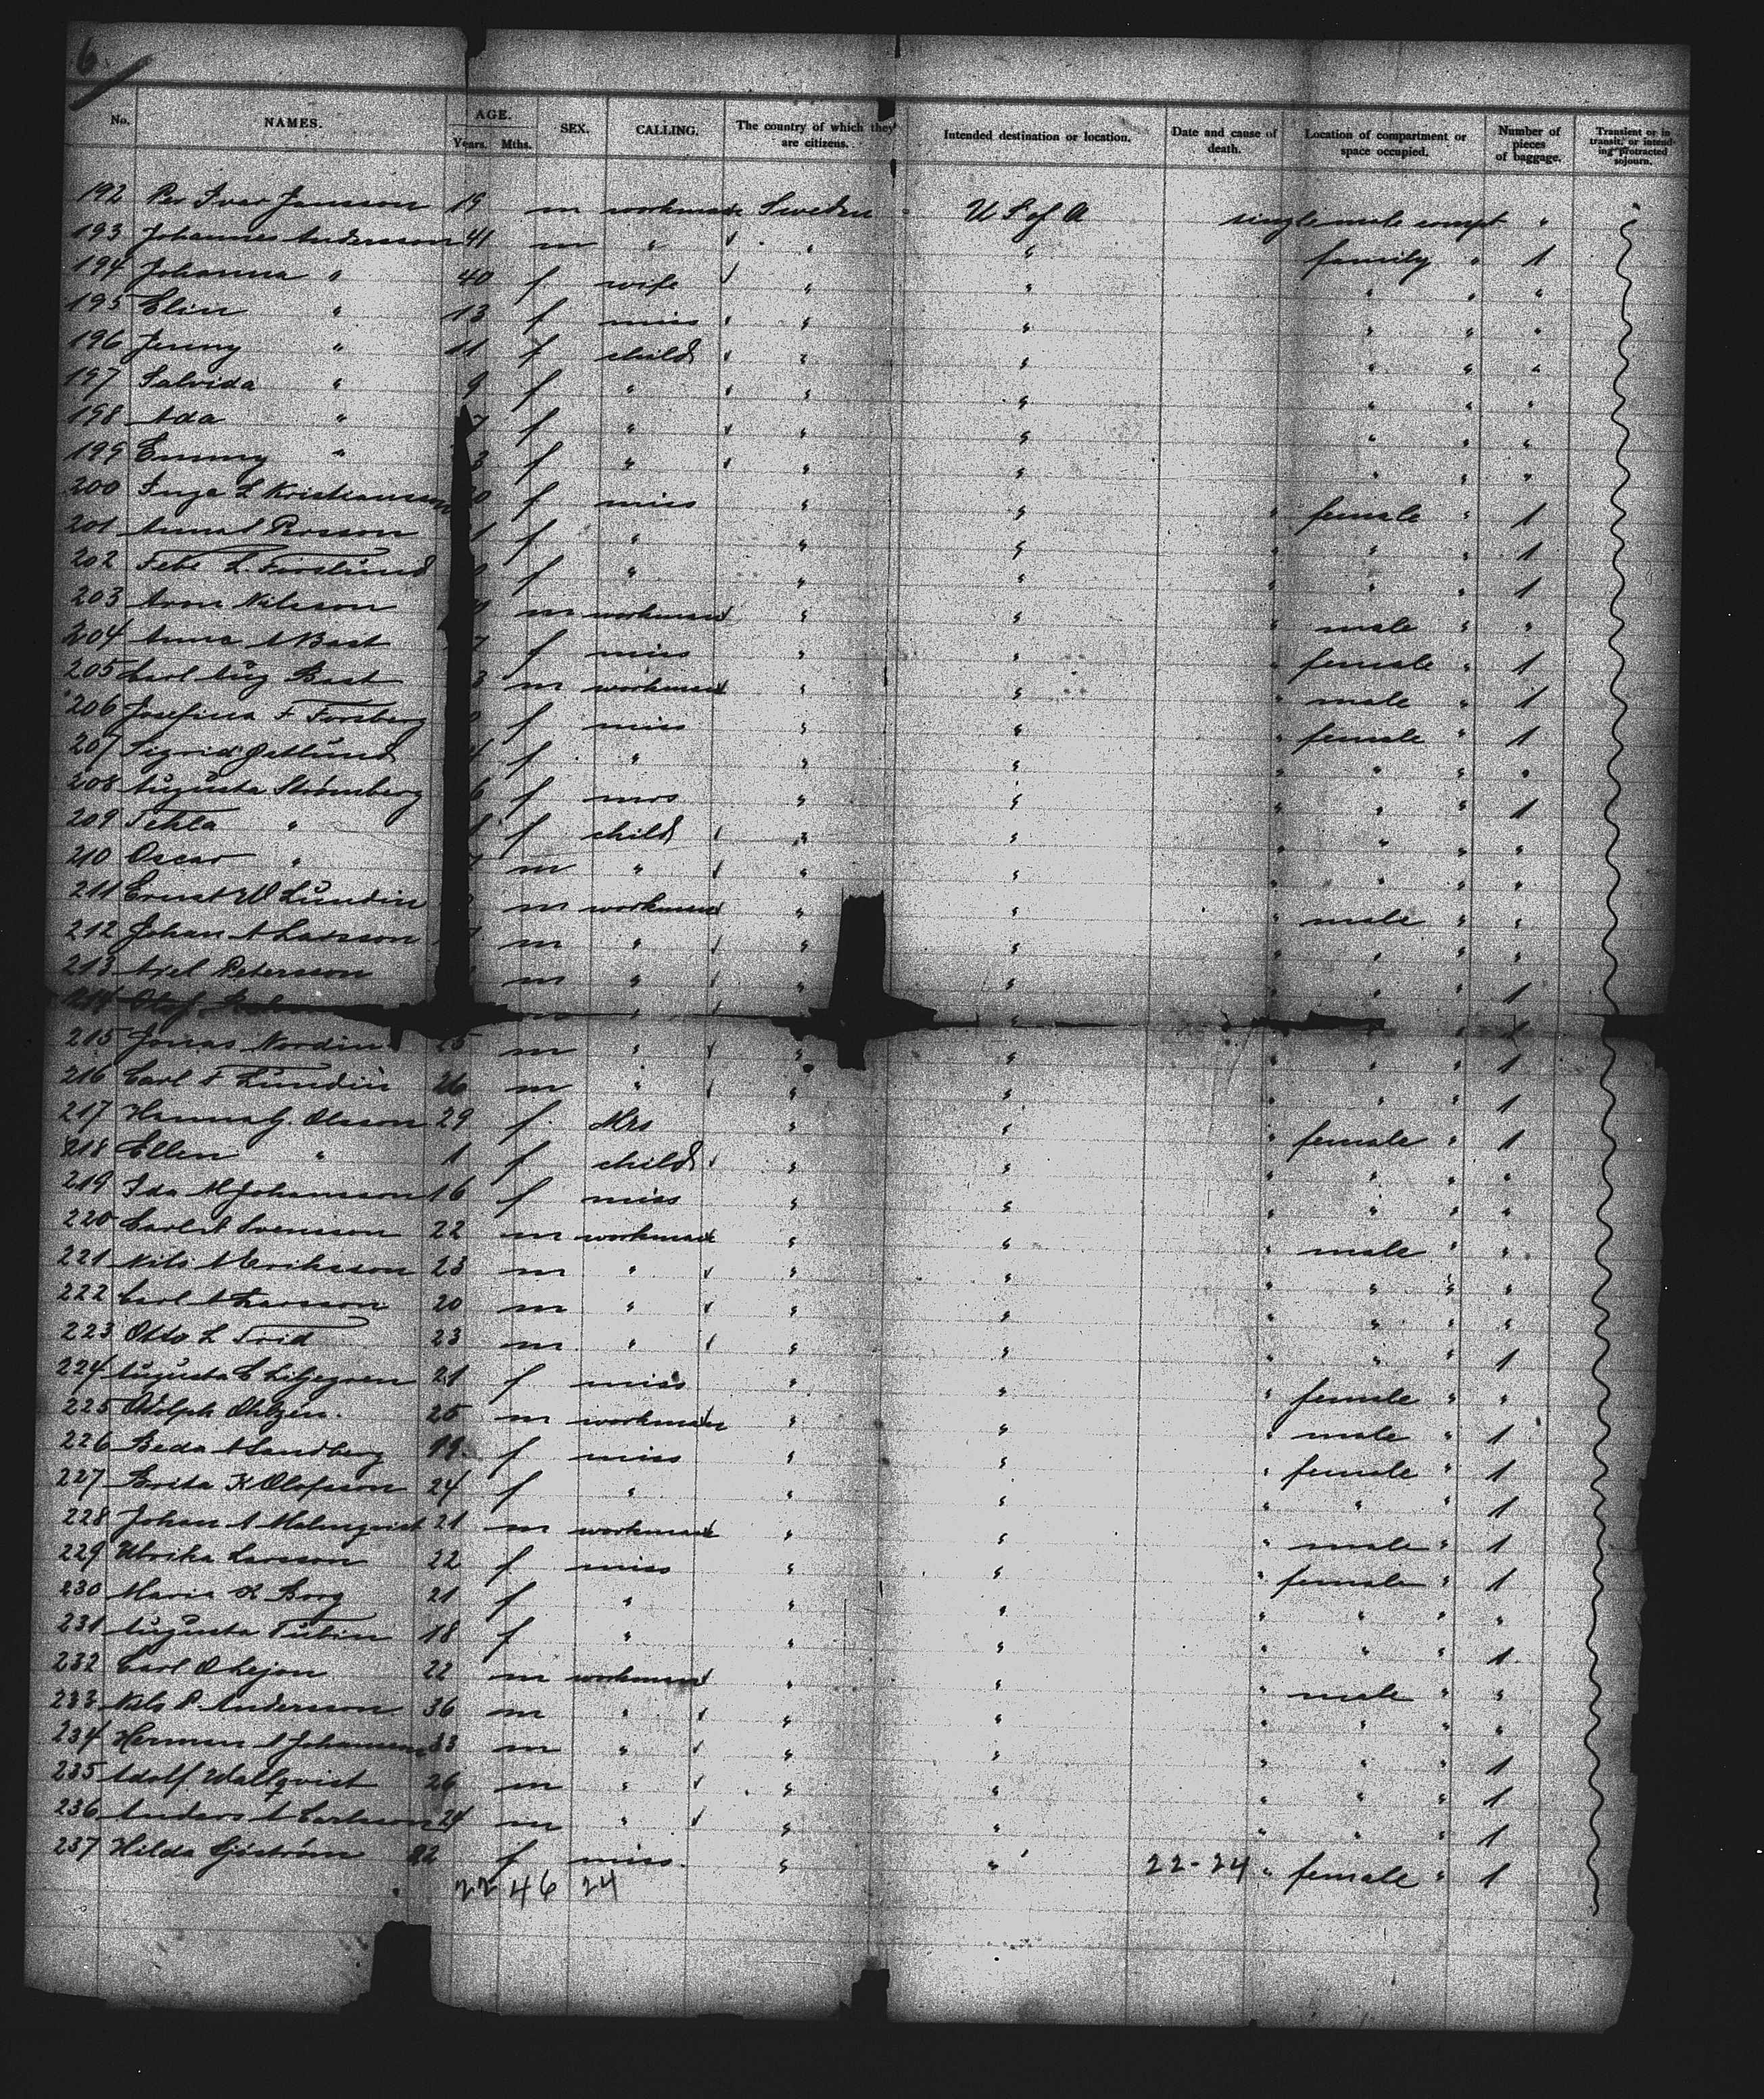 6.
No. NAMES. AGE. Years. Mths. SEX. CALLING. The country of which they are citizens. Intended destination or location. Date and cause of death. Location of compartment or space occupied. Number of pieces of baggage. Transient or in transit, or intending protracted sojourn.
192 Per Ivar Jansson 19 m workman Sweden U S of A single male compt "
193 Johannes Andersson 41 m " " " family " 1
194 Johanna " 40 f wife " " " " "
195 Elin " 13 f miss " " " " "
196 Jenny " 11 f child " " " " "
197 Salvida " 9 f " " " " " "
198 Ada " 7 f " " " " " "
199 Emmy " 3 f " " " " " "
200 Inga L Kristiansson f miss " " " female " 1
201 Anna Persson f " " " " " " 1
202 L. Forslund f " " " " " " 1
203 Nilsson m workman " " " male " "
204 Anna A Bast f miss " " " female " 1
205 Carl Aug Bast m workman " " " male " 1
206 Josefina F Forsberg f miss " " " female " 1
207 Sigrid f " " " " " " "
208 Augusta Strömberg f mrs " " " " " 1
209 Tekla " f child " " " " " "
210 Oscar " m " " " " " " "
211 Ernst W Lundin m workman " " " male " "
212 Johan A Larsson m " " " " " " "
213 Axel Petersson m " " " " " " 1
214 Olof m " " " " 1
215 Jonas Nordin 25 m " " " " " " 1
216 Carl F Lundin 26 m " " " " " " 1
217 Hanna G. Olsson 29 f Mrs " " " female " 1
218 Ellen " 1 f child " " " " " "
219 Ida M Johansson 16 f miss " " " " " "
220 Carl A Svensson 22 m workman " " " male " "
221 Nils A Eriksson 23 m " " " " " " "
222 Carl A Larsson 20 m " " " " " " "
223 Otto L 23 m " " " " " " 1
224 Augusta C Liljegren 21 f miss " " " female " "
225 Adolph 25 m workman " " " male " 1
226 Beda A Sandberg 19 f miss " " " female " 1
227 Brita K Olofsson 24 f " " " " " " 1
228 Johan A Malmqvist 21 m workman " " " male " 1
229 Ulrika Larsson 22 f miss " " " female " 1
230 Maria K Borg 21 f " " " " " " "
231 Augusta Tubin 18 f " " " " " " 1
232 Carl O Lejon 22 m workman " " " male " "
233 Nils P. Andersson 36 m " " " " " " "
234 Herman A Johansson 33 m " " " " " " 1
235 Adolf Wallqvist 26 m " " " " " " 1
236 Anders A Carlsson 24 m " " " " " " 1
237 Hilda Sjöström 22 f miss " " 22-24 " female " 1
22 46 24